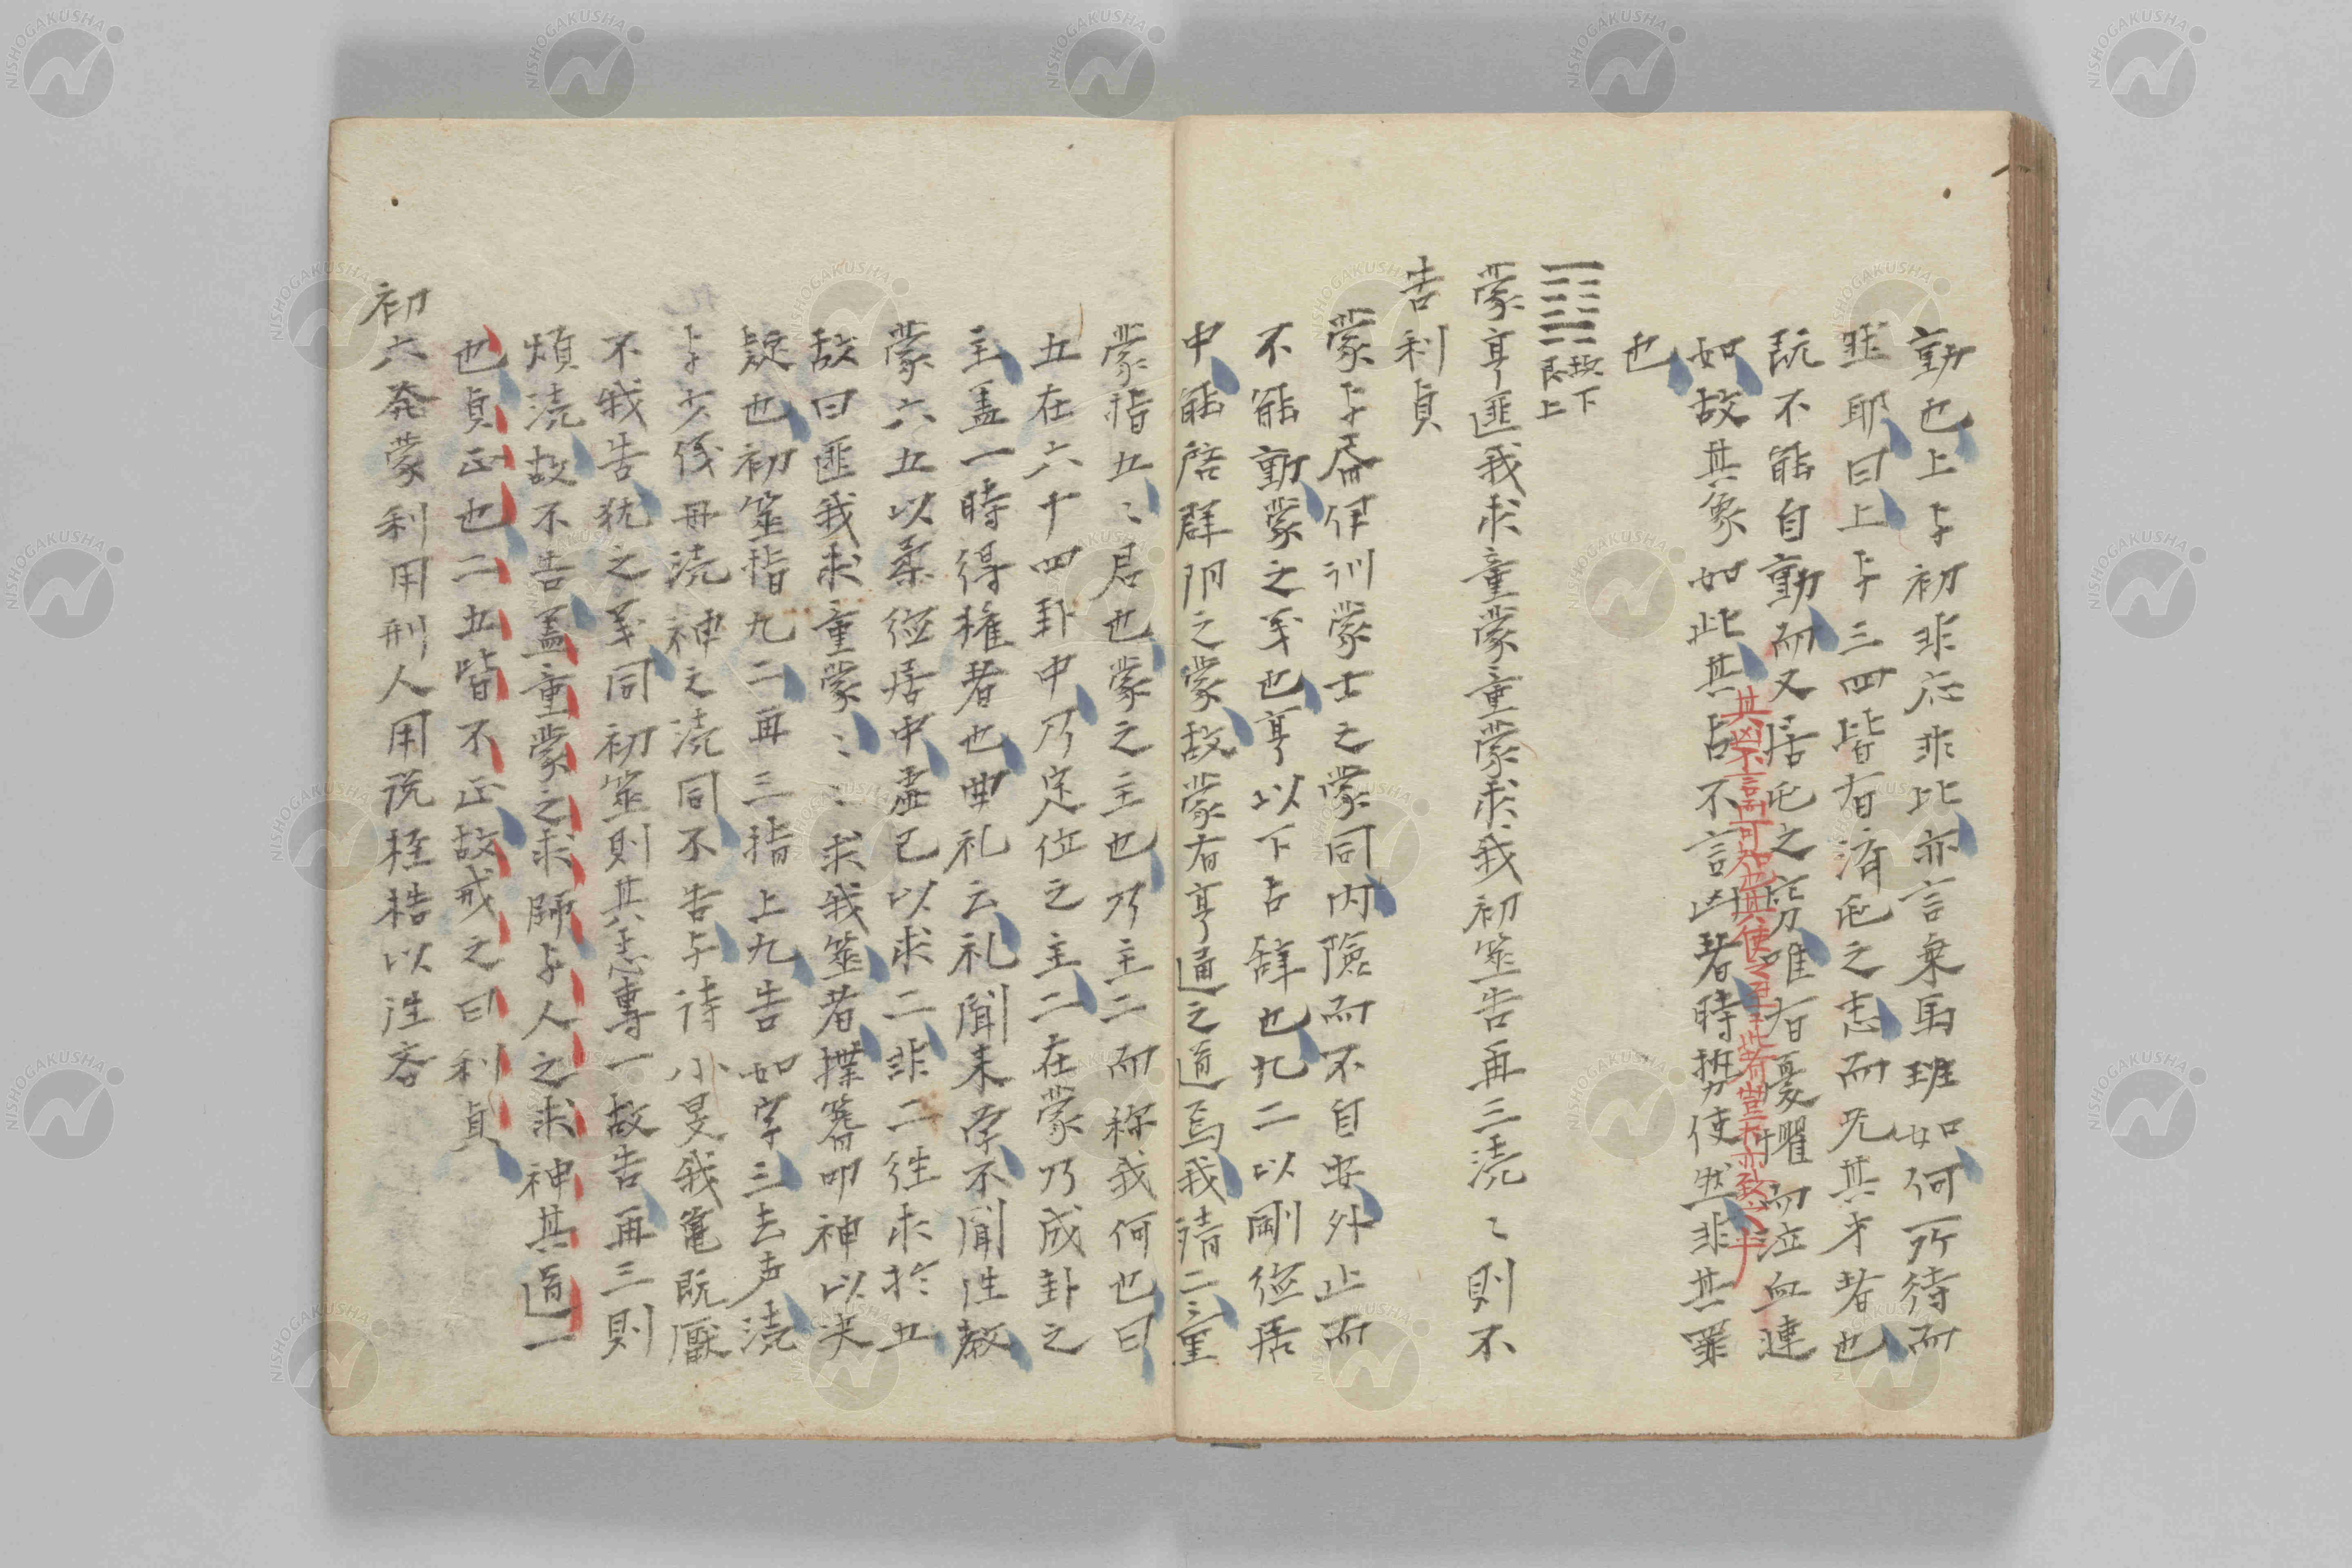 動也上与初非応非比亦言乗馬班如何所待而
然耶曰上与三四皆有済屯之志而旡其才者也
既不能自動而又居屯之窮唯有憂懼而泣血連
如故其象如此其占不言凶者時勢使然非其罪
也
坎下
艮上
蒙亨匪我求童蒙童蒙求我初筮告再三瀆〻則不
告利貞
蒙与商伊訓蒙士之蒙同内険而不自安外止而
不能動蒙之義也亨以下占辞也九二以剛徳居
中能啓群陰之蒙故蒙有亨通之道焉我猜二〻童
蒙指五〻君也蒙之主也乃主二而称我何也曰
五在六十四卦中乃定位之主二在蒙乃成卦之
主蓋一時得権者也曲礼云礼聞来学不聞往教
蒙六五以柔徳居中虚己以求二非二往求於五
故曰匪我求童蒙〻〻求我筮者揲筭叩神以決
疑也初筮指九二再三指上九告如字三去声瀆
与少儀毋瀆神之瀆同不告与詩小旻我亀既厭
不我告猶之義同初筮則其志専一故告再三則
煩瀆故不告蓋童蒙之求師与人之求神其道一
也貞正也二五皆不正故戒之曰利貞
初六発蒙利用刑人用説桎梏以往吝
NISHOGAKUSHA